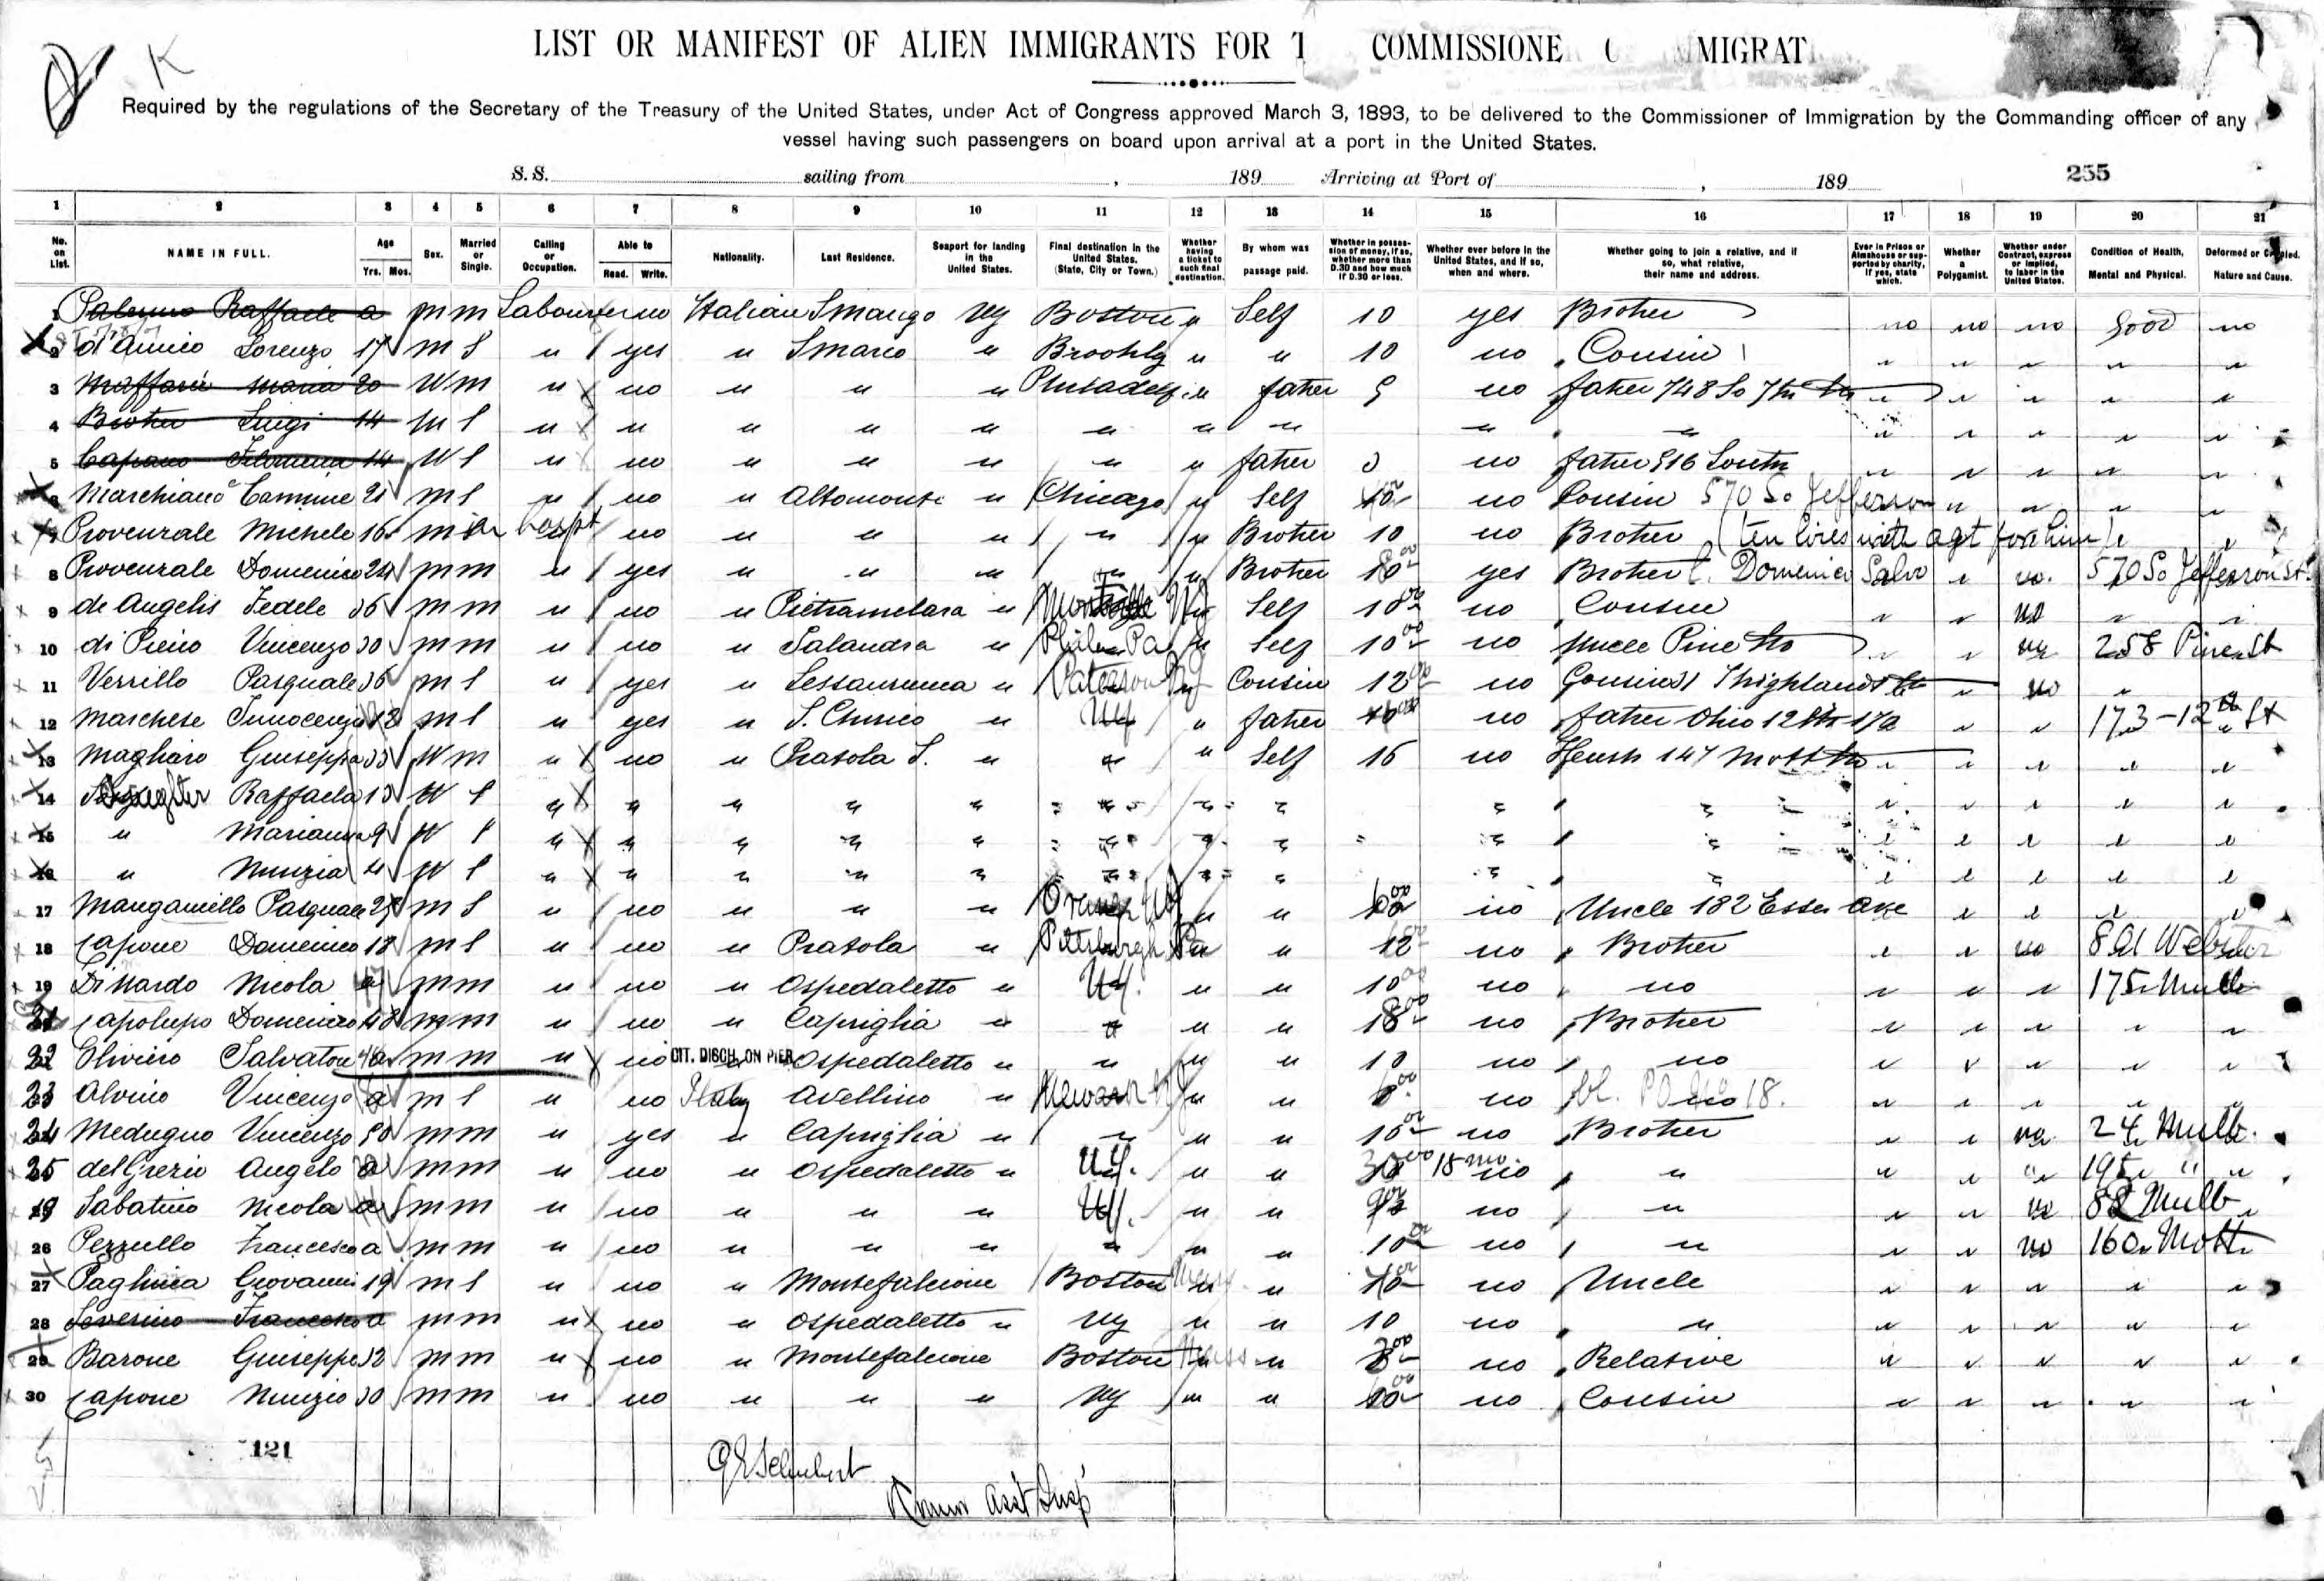 K
LIST OR MANIFEST OF ALIEN IMMIGRANTS FOR T COMMISSIONE MIGRAT
Required by the regulations of the Secretary of the Treasury of the United States, under Act of Congress approved March 3, 1893, to be delivered to the Commissioner of Immigration by the Commanding officer of any
vessel having such passengers on board upon arrival at a port in the United States.
S. S. sailing from , 189 Arriving at Port of , 189 255
1 2 3 4 5 6 7 8 9 10 11 12 13 14 15 16 17 18 19 20 21
No. on List. NAME IN FULL. Age Yrs. Mos. Sex. Married or Single. Calling or Occupation. Able to Read. Write. Nationality. Last Residence. Seaport for landing in the United States. Final destination in the United States. (State, City or Town.) Whether having a ticket to such final destination. By whom was passage paid. Whether in possession of money, if so, whether more than D.30 and how much if D.30 or less. Whether ever before in the United States, and if so, when and where. Whether going to join a relative, and if so, what relative, their name and address. Ever in Prison or Almshouse or supported by charity, if yes, state which. Whether a Polygamist. Whether under Contract, express or implied, to labor in the United States. Condition of Health, Mental and Physical. Deformed or Crippled. Nature and Cause.
1 Palermo Raffaele a m m Labourer no Italian Smango Ny Boston " Self 10 yes Brother no no no good no
2 d'Amico Lorenzo 17 m S " yes " Smarco " Brooklg " " 10 no Cousin " " " " "
3 Maffarii Maria 20 W m " no " " " Philadelf " father 5 no father 748 So 7th " " " " "
4 Brother Luigi 14 m S " " " " " " " " " " " " " " "
5 Capano Filomena 14 W S " no " " " " " father 0 no father 916 South " " " " "
6 Marchiano Carmine 21 m S " no " Altomonte " Chicago " Self 10 no Cousin 570 So Jefferson " " " " "
7 Provenzale Michele 16 m no " " " " " Brother 10 no Brother (ten lires with agt for him)
8 Provenzale Domenico 24 m m " yes " " " " " Brother 10 yes Brother C. Domenico Salvo " no 570 So Jefferson St.
9 de Angelis Fedele 36 m m " no " Pietramelara " NY Self 10 no Cousin " " no " "
10 di Piero Vincenzo 30 m m " no " Salandra " Phila Pa " Self 10 no Uncle Pine " " 258 Pine St
11 Verrillo Pasquale 36 m S " yes " Sessaurunca " Paterson NJ Cousin 12 no Cousin Highland " no "
12 Marchese Innocenzo 18 m S " yes " S. Chirico " NY " father 10 no father Ohio 12 " " 173 - 12th St
13 Magliaro Giuseppa 33 W m " no " Pratola S. " " " Self 15 no Hush 147 Mott " " " " "
14 Daughter Raffaela 13 W S " " " " " " " " " " " " " " "
15 " Marianna 9 W " " " " " " " " " " " " " " "
16 " Nunzia 4 W S " " " " " " " " " " " " " " "
17 Manganiello Pasquale 25 m S " no " " " Orange NJ " " 10 no Uncle 182 Essex Ave " " " "
18 Capone Domenico 18 m S " no " Pratola " Pittsburgh Pa " 12 no Brother " " no Webster
19 Di Nardo Nicola m m " no " Ospedaletto " NY. " " 10 no no " " " 175 Mulb
21 Capolupo Domenico 48 m m " no " Capriglia " " " " 18 no Brother " " " " "
22 Oliviero Salvatore m m " no CIT. DISCH. ON PIER Ospedaletto " " " " 10 no no " " " " "
23 Alvino Vincenzo m S " no Italy Avellino " Newark NJ " " no " " " " "
24 Medugno Vincenzo 50 m m " yes " Capriglia " " " " 10 no Brother " " no 24 Mulb.
25 del Grezio Angelo a m m " no " Ospedaletto " NY. " " 15 mo. no " " " " 195 " "
19 Sabatino Nicola a m m " no " " " NY. " " no " " " no 82 Mulb
26 Pezzullo Francesco a m m " no " " " " " " 10 no " " " no 160 Mott
27 Pagliuca Giovanni 19 m S " no " Montefalcione Boston Mass " 10 no Uncle " " " " "
28 Severino Francesco a m m " no " Ospedaletto " Ny " " 10 no " " " " " "
29 Barone Giuseppe 32 m m " no " Montefalcione Boston Mass " no Relative " " " " "
30 Capone Nunzio 30 m m " no " " " Ny " " 10 no Cousin " " " " "
121
G E Schubert
Asst Insp